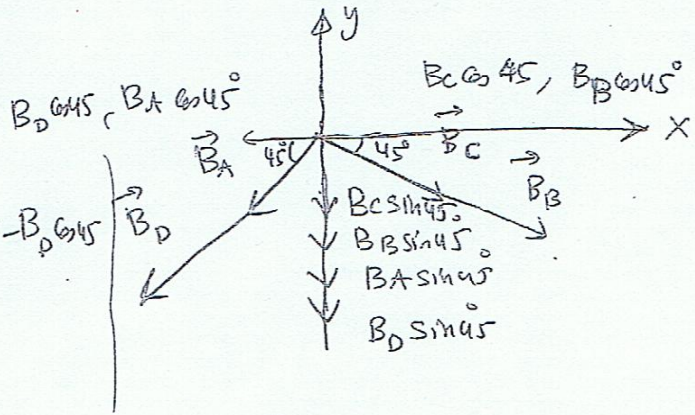 y
B_C cos 45, B_B cos 45°
B_D cos 45, B_A cos 45°
X
B⃗_A
45°
45°
B⃗_C
B⃗_B
-B_D cos 45
B⃗_D
B_C sin 45°
B_B sin 45°
B_A sin 45°
B_D sin 45°